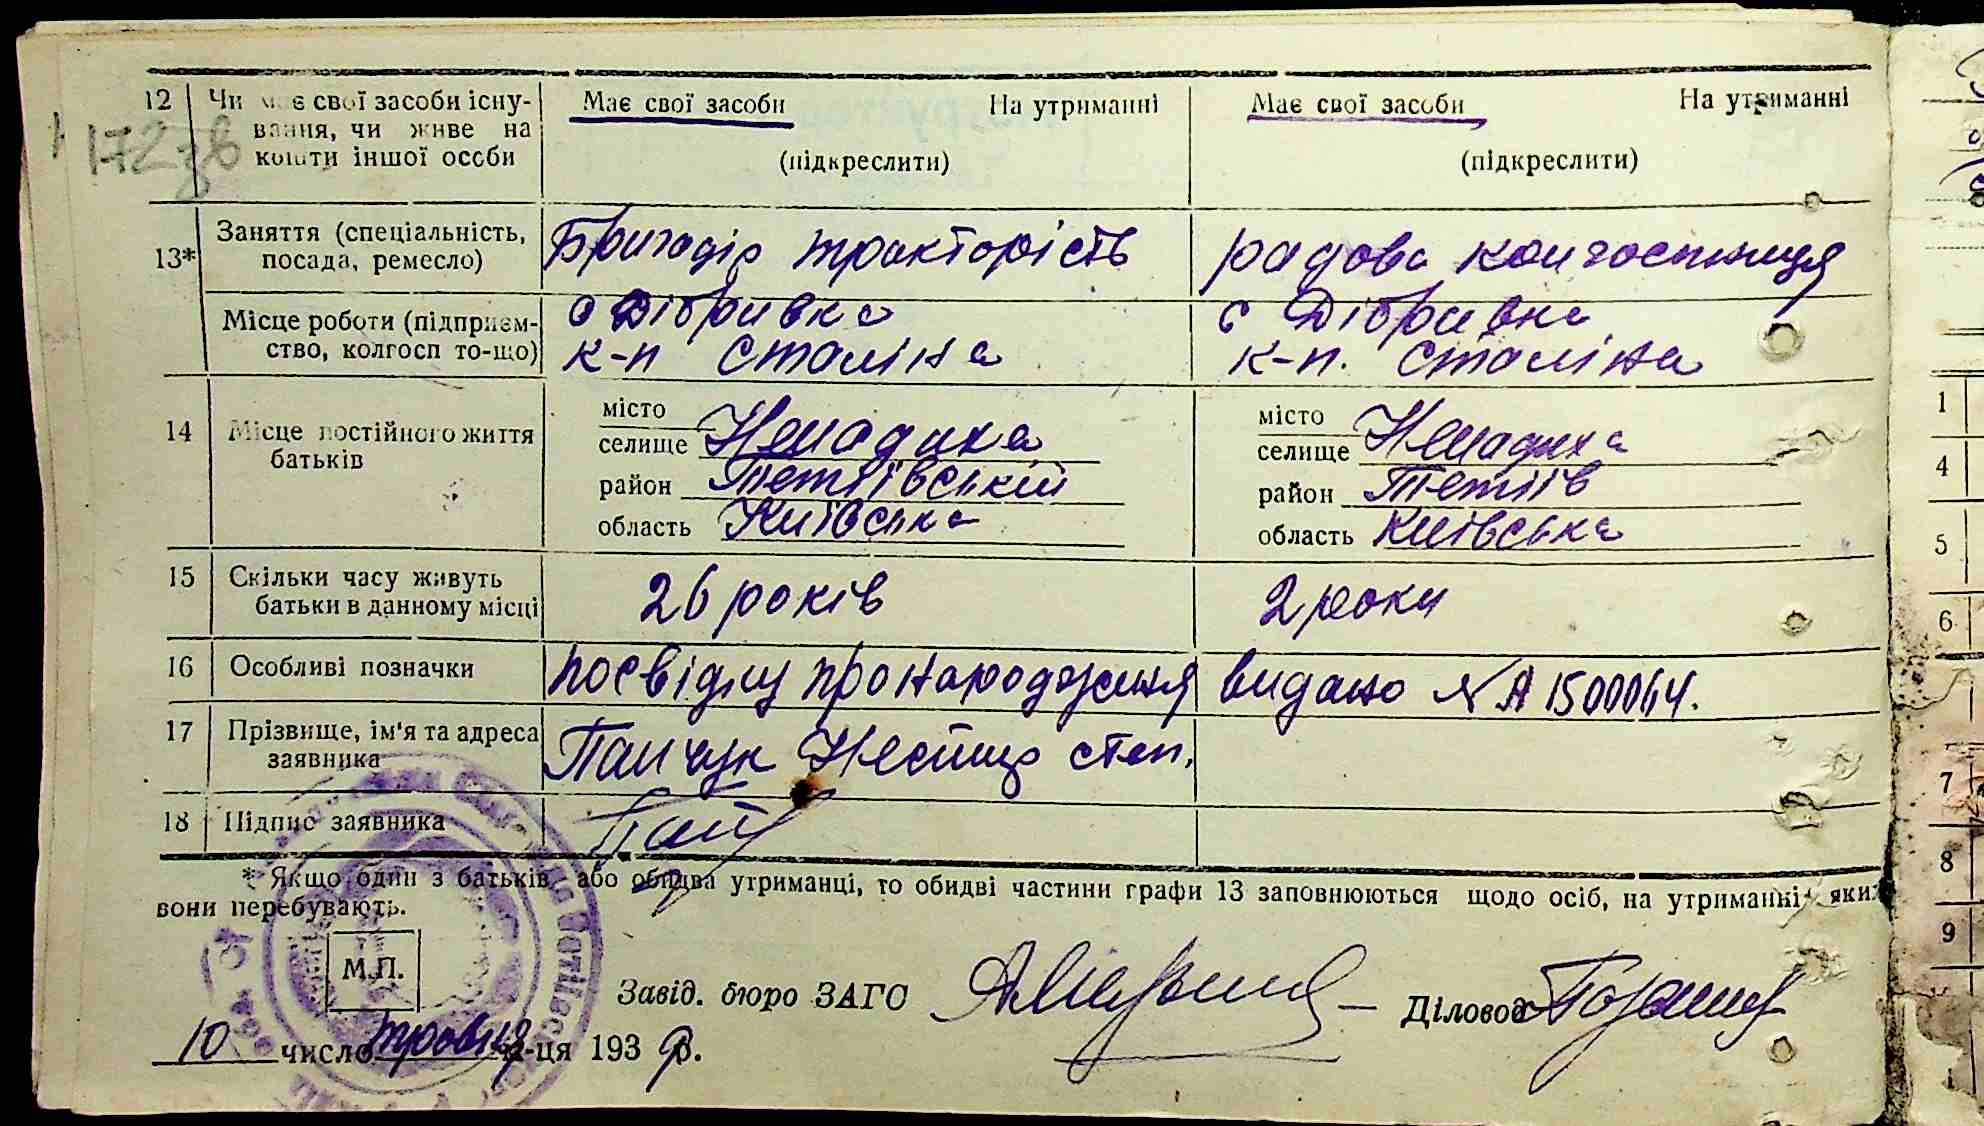 172 зв
12 Чи має свої засоби існу- Має свої засоби На утриманні Має свої засоби На утриманні
вання, чи живе на
кошти іншої особи (підкреслити) (підкреслити)
13* Заняття (спеціальність, Бригадір тракторість радова колгоспниця
посада, ремесло)
Місце роботи (підприєм- с Дібривка с Дібривка
ство, колгосп то-що) к-п Сталіна к-п. Сталіна
14 Місце постійного життя місто місто
батьків селище Ненадиха селище Ненадиха
район Тетіївській район Тетіїв
область Київська область Київська
15 Скільки часу живуть 26 років 2 роки
батьки в данному місці
16 Особливі позначки посвідку про народження видано № А 1500064.
17 Прізвище, ім'я та адреса Панчук степ.
заявника
18 Підпис заявника
* Якщо один з батьків або обидва утриманці, то обидві частини графи 13 заповнюються щодо осіб, на утриманні яких
вони перебувають.
М.П.
Завід. бюро ЗАГС Діловод
10 число травня м-ця 1939 р.
1
4
5
6
7
8
9